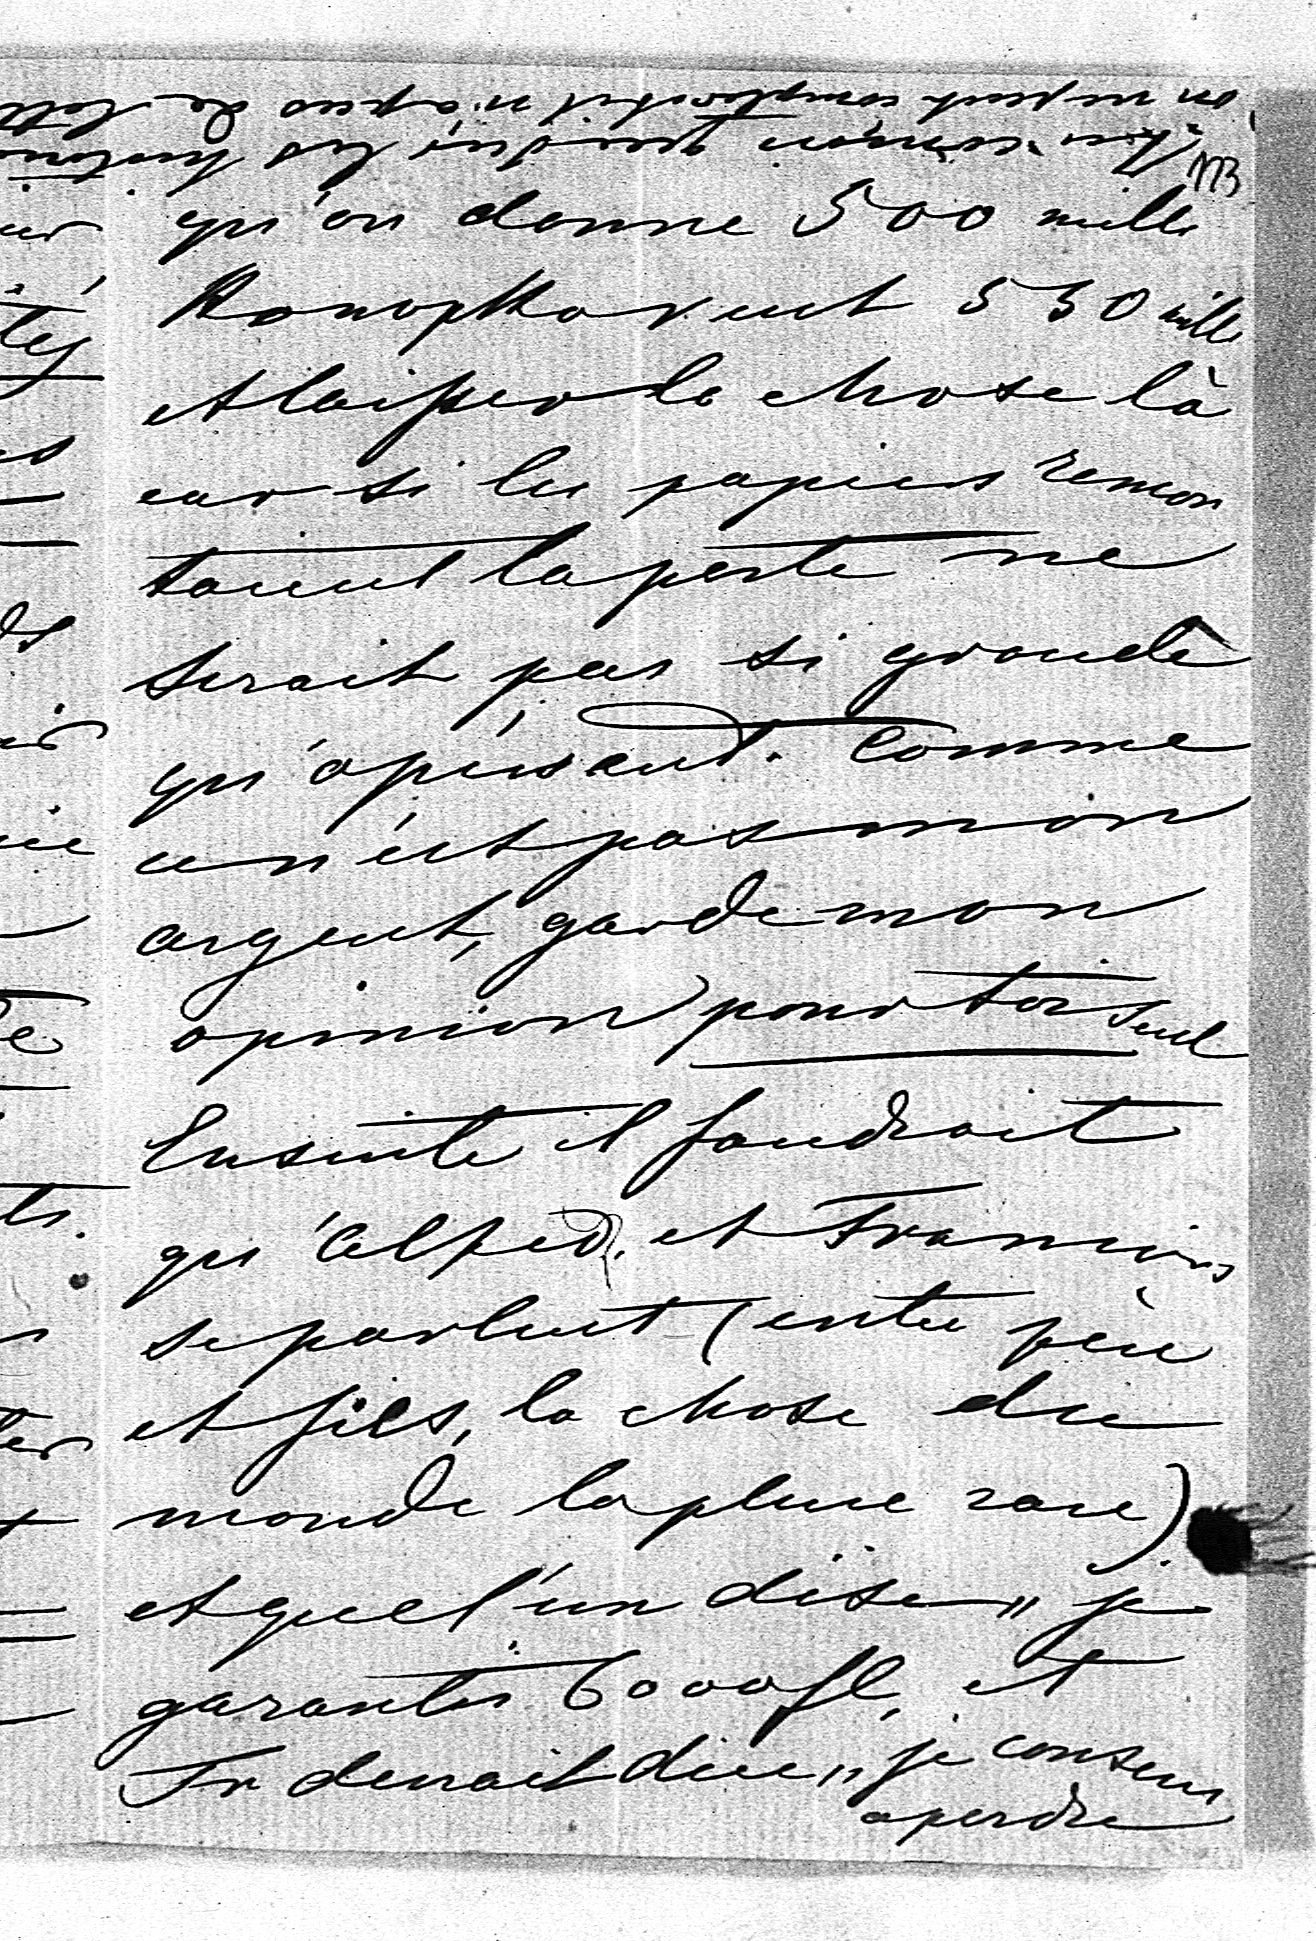 qu'on donne 500 mille
Konopka veut 530 mille
et laisser la chose là
car si les papiers remon
taient la perte ne
serait pas si grande
qu'àprésent. Comme
ce n'est pas mon
argent, garde mon
opinion pour toi seul
Ensuite il faudrait
qu'Alfred, et François
se parlent (entre père
et fils, la chose du
monde la plus rare)
et que l'un dise „ je
garantis 6000 fl, et
Fr devrait dire „ je consens
a perdre